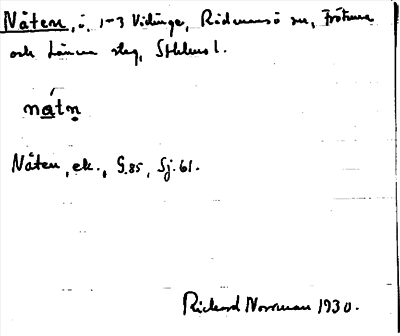 Nåten, ö, 1-3 Vidinge, Rådmansö sn, Frötuna
och Länna slg, Sthlms l.
nátn̥
Nåten, ek., G.85, Sj.61.
Rickard Norrman 1930.